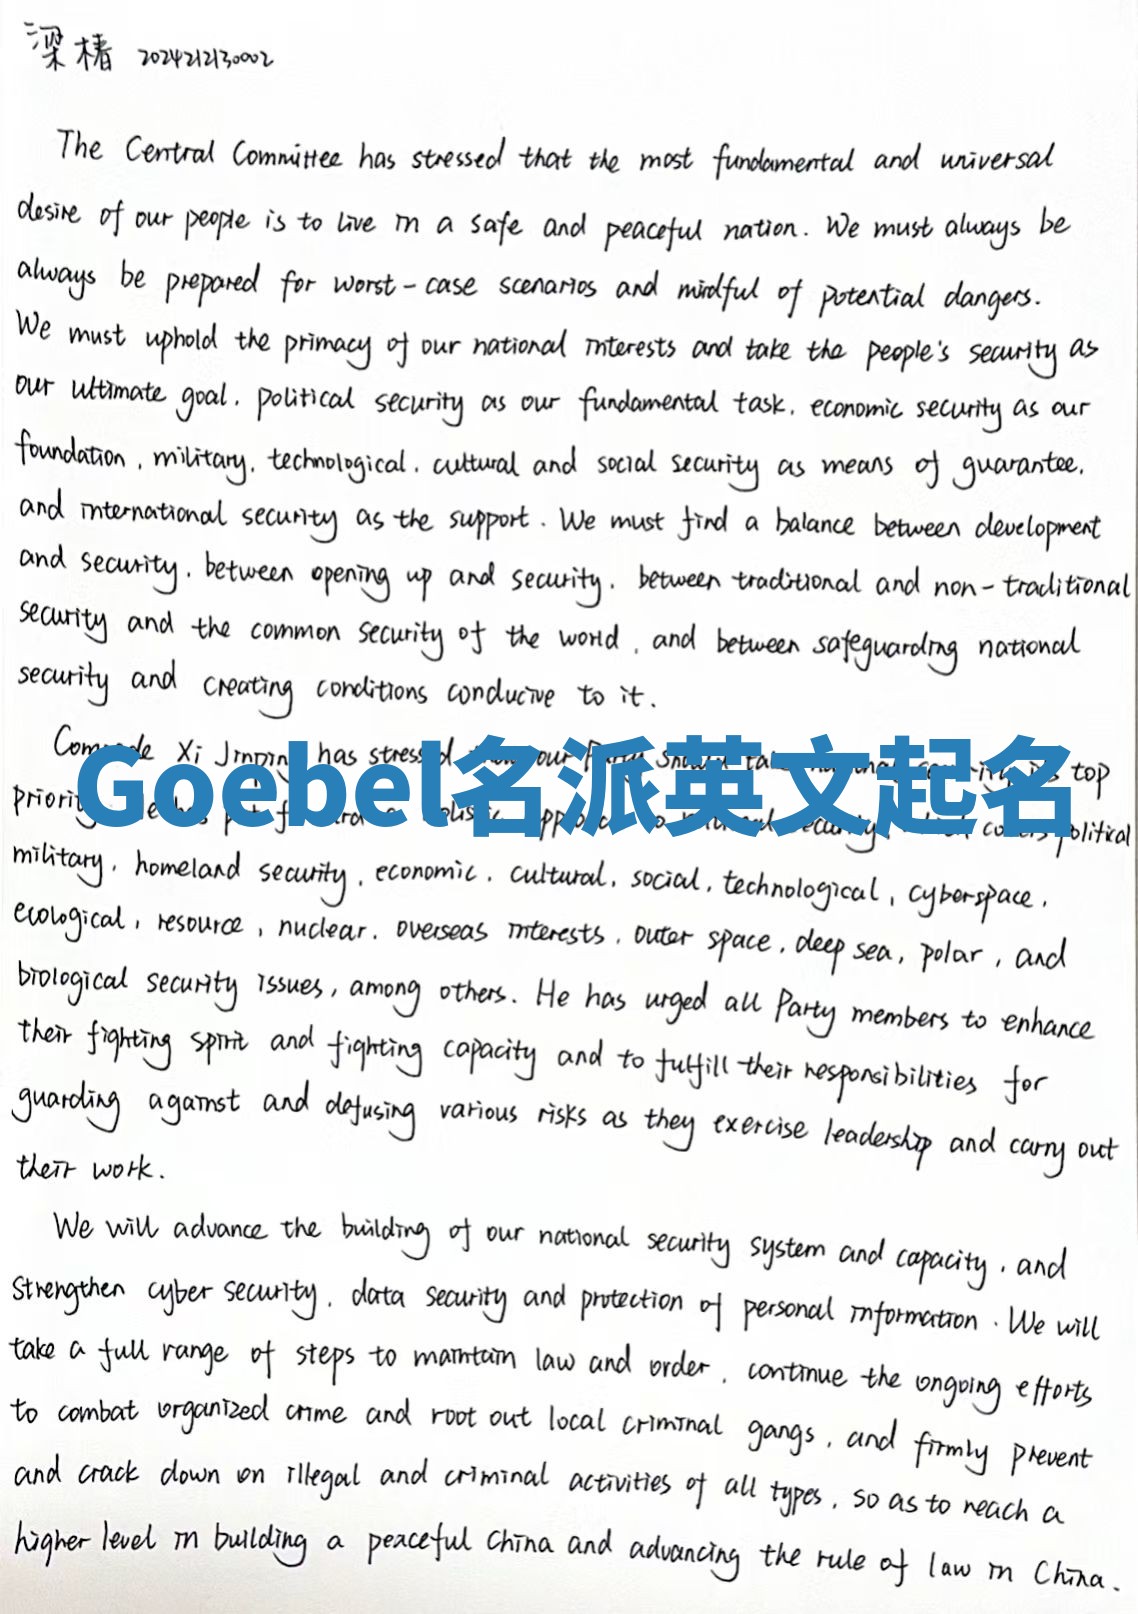 梁椿 2024212130002
The Central Committee has stressed that the most fundamental and universal
desire of our people is to live in a safe and peaceful nation. We must always be
always be prepared for worst-case scenarios and mindful of potential dangers.
We must uphold the primacy of our national interests and take the people's security as
our ultimate goal, political security as our fundamental task, economic security as our
foundation, military, technological, cultural and social security as means of guarantee,
and international security as the support. We must find a balance between development
and security, between opening up and security, between traditional and non-traditional
security and the common security of the world, and between safeguarding national
security and creating conditions conducive to it.
Xi Jinping has our top
Goebel名派英文起名
political
military, homeland security, economic, cultural, social, technological, cyberspace,
ecological, resource, nuclear, overseas interests, outer space, deep sea, polar, and
biological security issues, among others. He has urged all Party members to enhance
their fighting spirit and fighting capacity and to fulfill their responsibilities for
guarding against and defusing various risks as they exercise leadership and carry out
their work.
We will advance the building of our national security system and capacity, and
strengthen cyber security, data security and protection of personal information. We will
take a full range of steps to maintain law and order, continue the ongoing efforts
to combat organized crime and root out local criminal gangs, and firmly prevent
and crack down on illegal and criminal activities of all types, so as to reach a
higher level in building a peaceful China and advancing the rule of law in China.